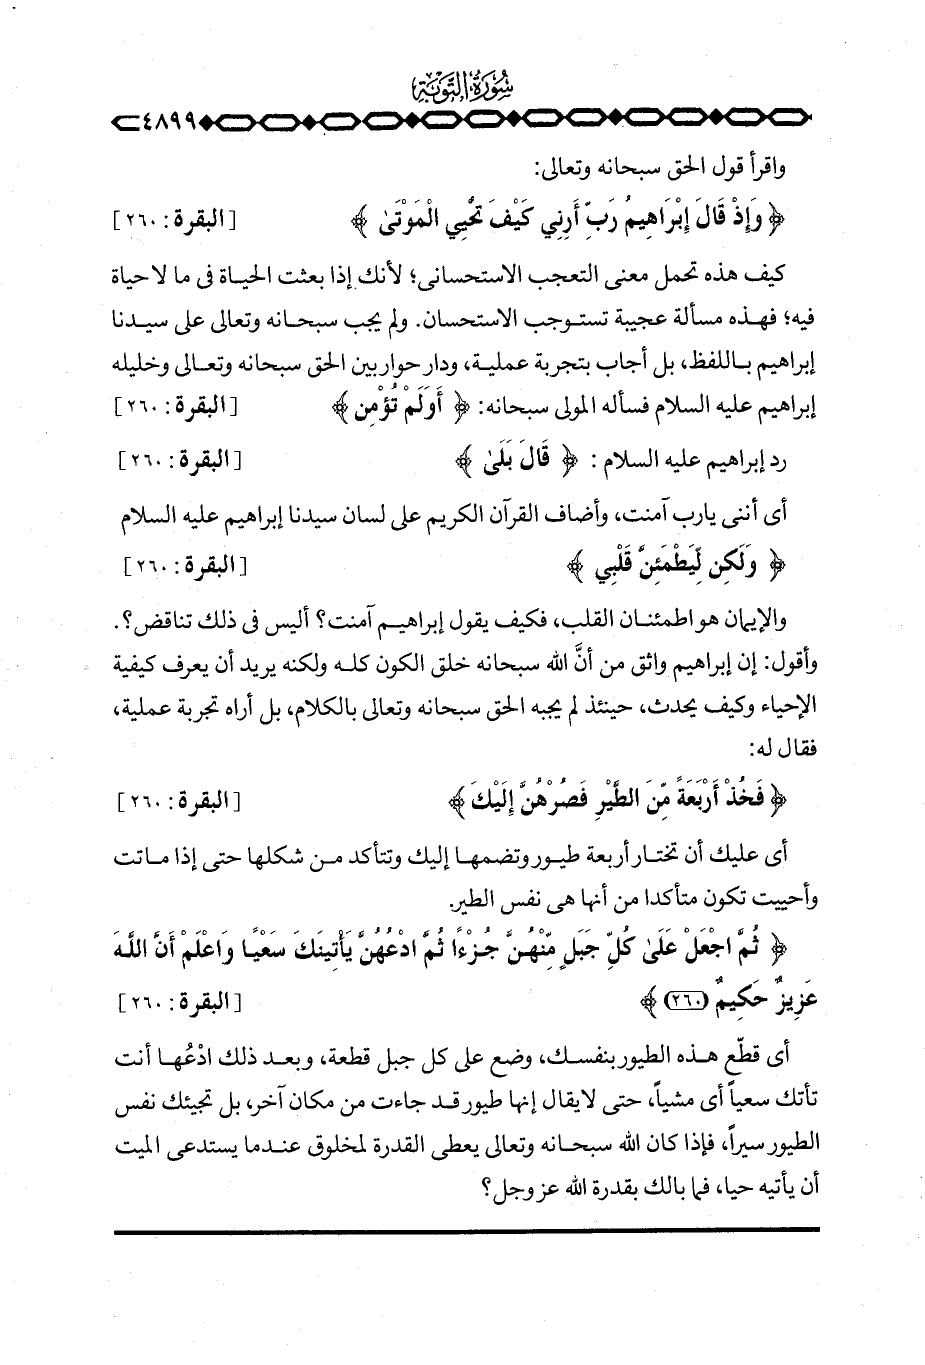 سُورَةُ التَّوبَة
٤٨٩٩
واقرأ قول الحق سبحانه وتعالى:
﴿ وَإِذْ قَالَ إِبْرَاهِيمُ رَبِّ أَرِنِي كَيْفَ تُحْيِي الْمَوْتَىٰ ﴾ [البقرة: ٢٦٠]
كيف هذه تحمل معنى التعجب الاستحسانى؛ لأنك إذا بعثت الحياة فى ما لا حياة
فيه؛ فهذه مسألة عجيبة تستوجب الاستحسان. ولم يجب سبحانه وتعالى على سيدنا
إبراهيم باللفظ، بل أجاب بتجربة عملية، ودار حوار بين الحق سبحانه وتعالى وخليله
إبراهيم عليه السلام فسأله المولى سبحانه: ﴿ أَوَلَمْ تُؤْمِن ﴾ [البقرة: ٢٦٠]
رد إبراهيم عليه السلام : ﴿ قَالَ بَلَىٰ ﴾ [البقرة: ٢٦٠]
أى أننى يارب آمنت، وأضاف القرآن الكريم على لسان سيدنا إبراهيم عليه السلام
﴿ وَلَكِن لِّيَطْمَئِنَّ قَلْبِي ﴾ [البقرة: ٢٦٠]
والإيمان هو اطمئنان القلب، فكيف يقول إبراهيم آمنت؟ أليس فى ذلك تناقض؟.
وأقول: إن إبراهيم واثق من أنَّ الله سبحانه خلق الكون كله ولكنه يريد أن يعرف كيفية
الإحياء وكيف يحدث، حينئذ لم يجبه الحق سبحانه وتعالى بالكلام، بل أراه تجربة عملية،
فقال له:
﴿ فَخُذْ أَرْبَعَةً مِّنَ الطَّيْرِ فَصُرْهُنَّ إِلَيْكَ ﴾ [البقرة: ٢٦٠]
أى عليك أن تختار أربعة طيور وتضمها إليك وتتأكد من شكلها حتى إذا ماتت
وأحييت تكون متأكدا من أنها هى نفس الطير.
﴿ ثُمَّ اجْعَلْ عَلَىٰ كُلِّ جَبَلٍ مِّنْهُنَّ جُزْءًا ثُمَّ ادْعُهُنَّ يَأْتِينَكَ سَعْيًا وَاعْلَمْ أَنَّ اللَّهَ
عَزِيزٌ حَكِيمٌ (٢٦٠) ﴾ [البقرة: ٢٦٠]
أى قطّع هذه الطيور بنفسك، وضع على كل جبل قطعة، وبعد ذلك ادْعُها أنت
تأتك سعياً أى مشياً، حتى لا يقال إنها طيور قد جاءت من مكان آخر، بل تجيئك نفس
الطيور سيراً، فإذا كان الله سبحانه وتعالى يعطى القدرة لمخلوق عندما يستدعى الميت
أن يأتيه حيا، فما بالك بقدرة الله عز وجل؟